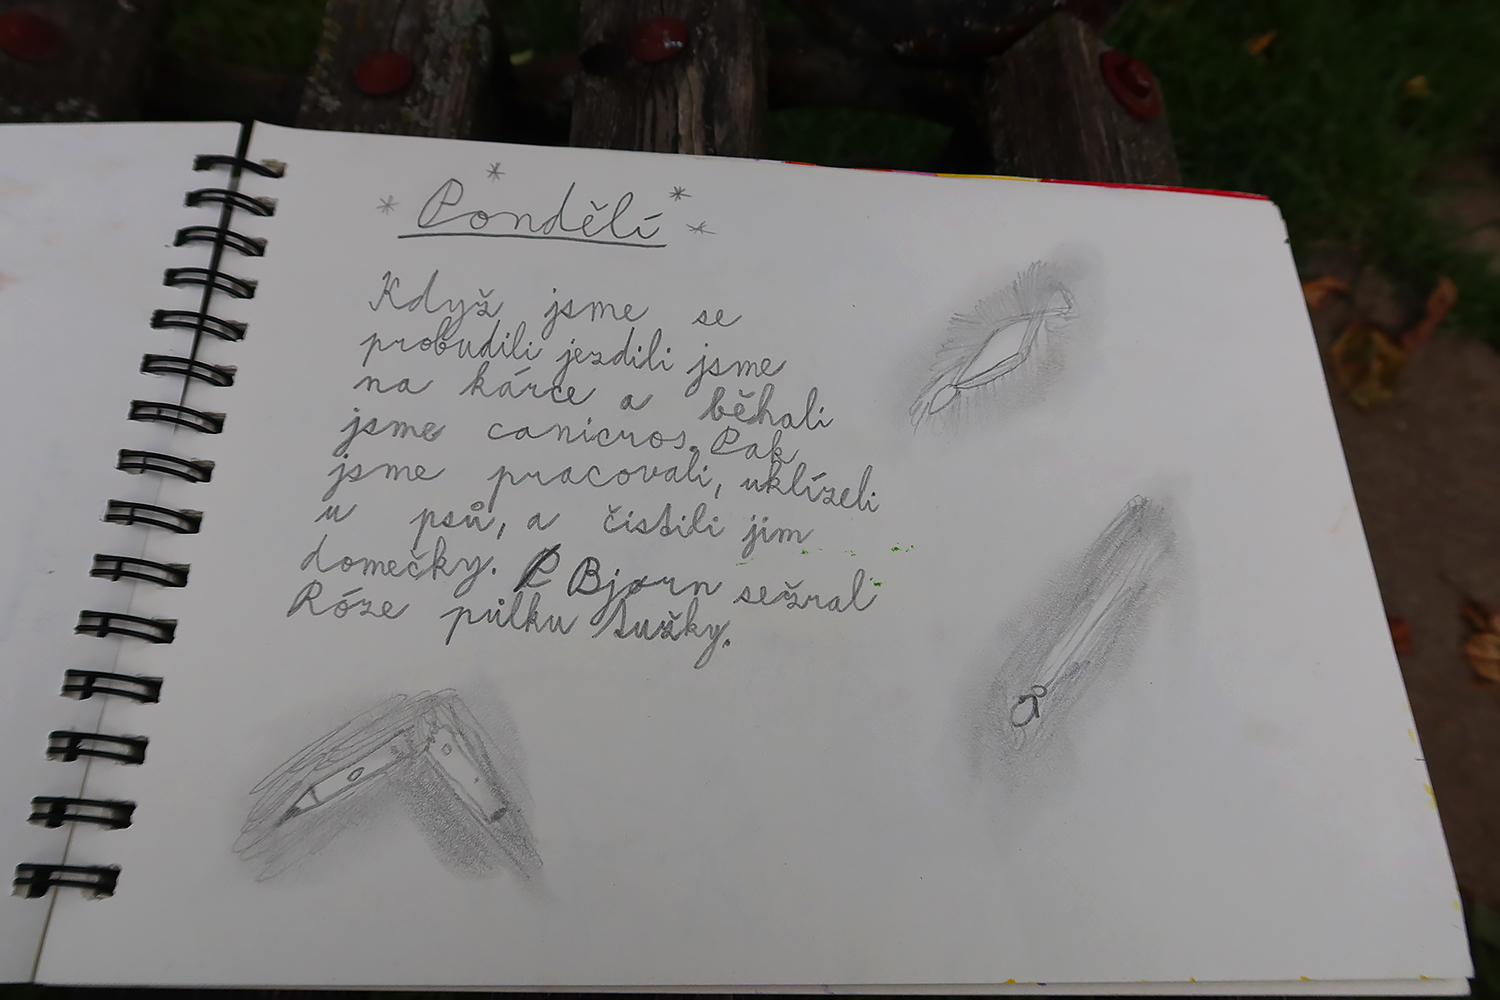 Pondělí
Když jsme se
probudili jezdili jsme
na kárce a běhali
jsme canicros. Pak
jsme pracovali, uklízeli
u psů, a čistili jim
domečky. Bjorn sežral
Róze půlku tužky.